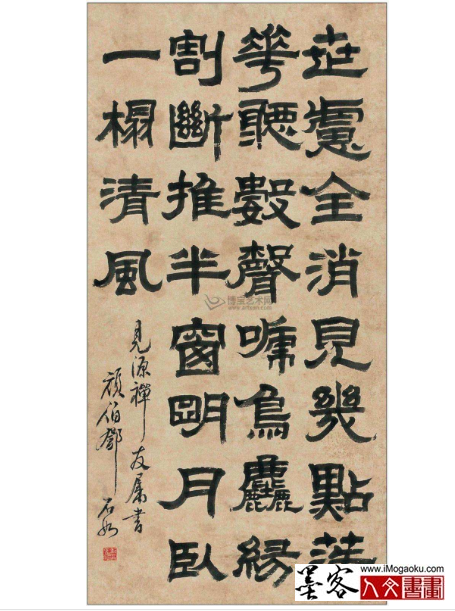 世慮全消見幾點落
華聽數聲啼鳥塵緣
割斷推半窗明月臥
一榻清風
見源禪友屬書
頑伯鄧石如
博宝艺术网
www.iMogaoku.com
墨客人文書畫